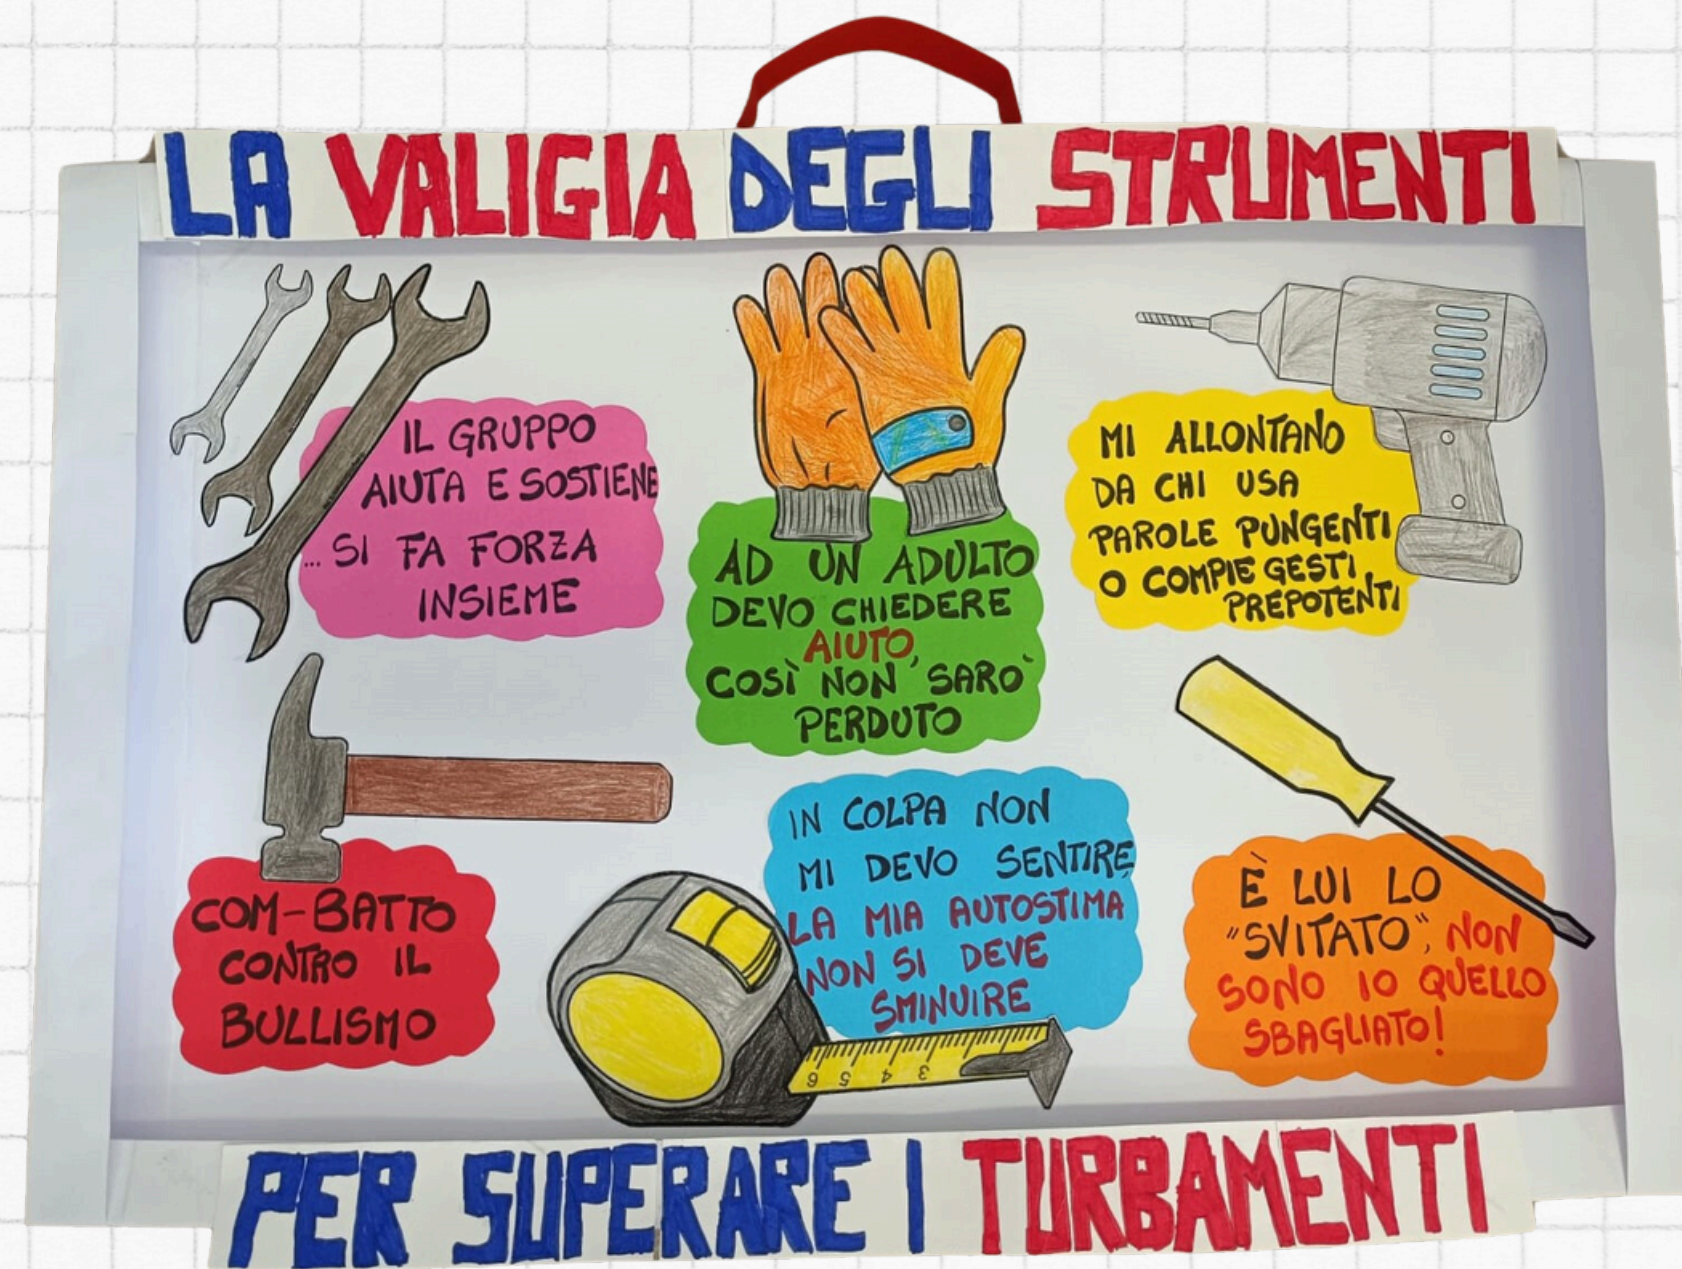 LA VALIGIA DEGLI STRUMENTI
IL GRUPPO
AIUTA E SOSTIENE
... SI FA FORZA
INSIEME
AD UN ADULTO
DEVO CHIEDERE
AIUTO,
COSÌ NON SARO'
PERDUTO
MI ALLONTANO
DA CHI USA
PAROLE PUNGENTI
O COMPIE GESTI
PREPOTENTI
COM-BATTO
CONTRO IL
BULLISMO
IN COLPA NON
MI DEVO SENTIRE,
LA MIA AUTOSTIMA
NON SI DEVE
SMINUIRE
È LUI LO
"SVITATO", NON
SONO IO QUELLO
SBAGLIATO!
6 5 4 3
PER SUPERARE I TURBAMENTI